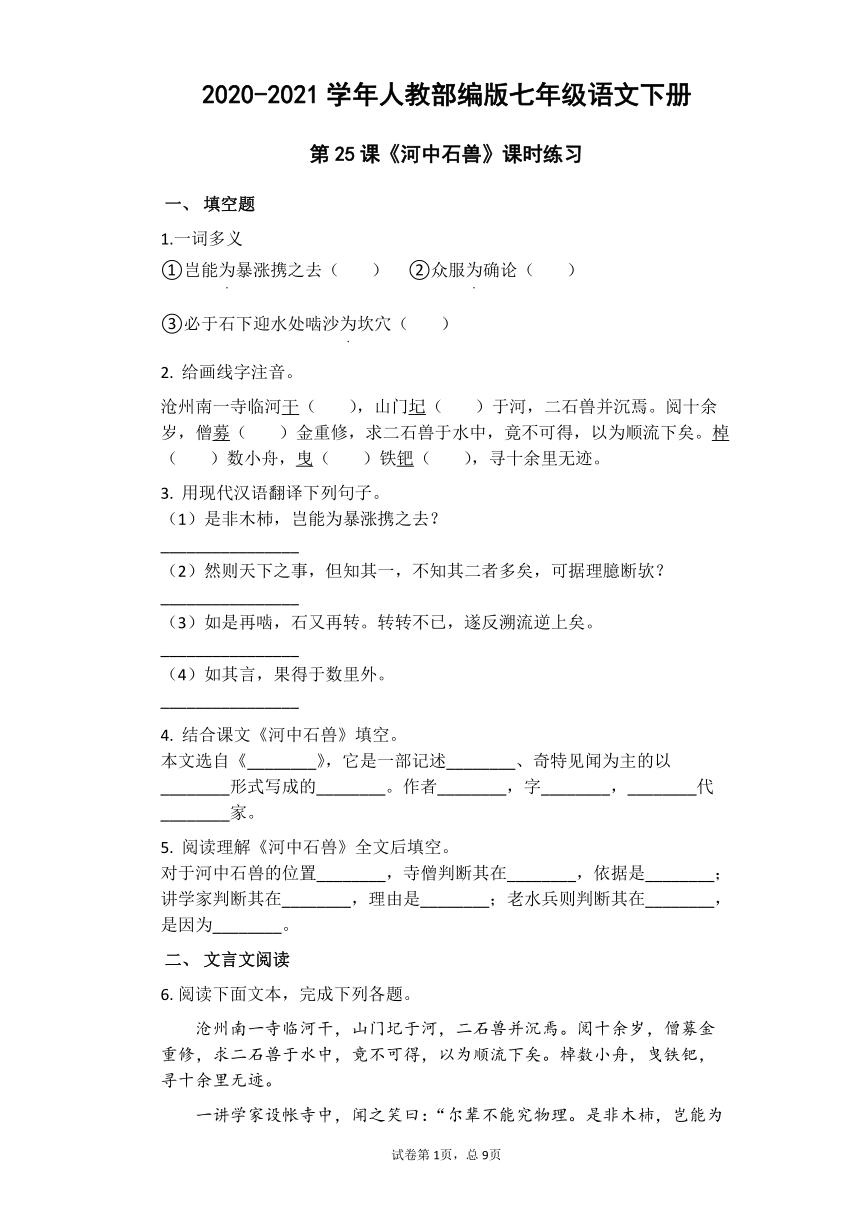 2020-2021 学年人教部编版七年级语文下册
第 25 课《河中石兽》课时练习
一、 填空题
1.一词多义
①岂能为暴涨携之去（　　） ②众服为确论（　　）
③必于石下迎水处啮沙为坎穴（　　）
2. 给画线字注音。
沧州南一寺临河干（　　），山门圮（　　）于河，二石兽并沉焉。阅十余
岁，僧募（　　）金重修，求二石兽于水中，竟不可得，以为顺流下矣。棹
（　　）数小舟，曳（　　）铁钯（　　），寻十余里无迹。
3. 用现代汉语翻译下列句子。
（1）是非木杮，岂能为暴涨携之去？
________________
（2）然则天下之事，但知其一，不知其二者多矣，可据理臆断欤？
________________
（3）如是再啮，石又再转。转转不已，遂反溯流逆上矣。
________________
（4）如其言，果得于数里外。
________________
4. 结合课文《河中石兽》填空。
本文选自《________》，它是一部记述________、奇特见闻为主的以
________形式写成的________。作者________，字________，________代
________家。
5. 阅读理解《河中石兽》全文后填空。
对于河中石兽的位置________，寺僧判断其在________，依据是________；
讲学家判断其在________，理由是________；老水兵则判断其在________，
是因为________。
二、 文言文阅读
6. 阅读下面文本，完成下列各题。
沧州南一寺临河干，山门圮于河，二石兽并沉焉。阅十余岁，僧募金
重修，求二石兽于水中，竟不可得，以为顺流下矣。棹数小舟，曳铁钯，
寻十余里无迹。
一讲学家设帐寺中，闻之笑曰：“尔辈不能究物理。是非木杮，岂能为
试卷第 1页，总 9页